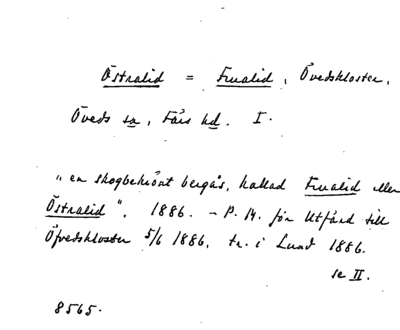 Östralid = Frualid, Övedskloster,
Öveds sn, Färs hd. I.
"en skogbekrönt bergås, kallad Frualid eller
Östralid". 1886. - P. M. för Utfärd till
Öfvedskloster 5/6 1886, tr. i Lund 1886.
se II.
8565.